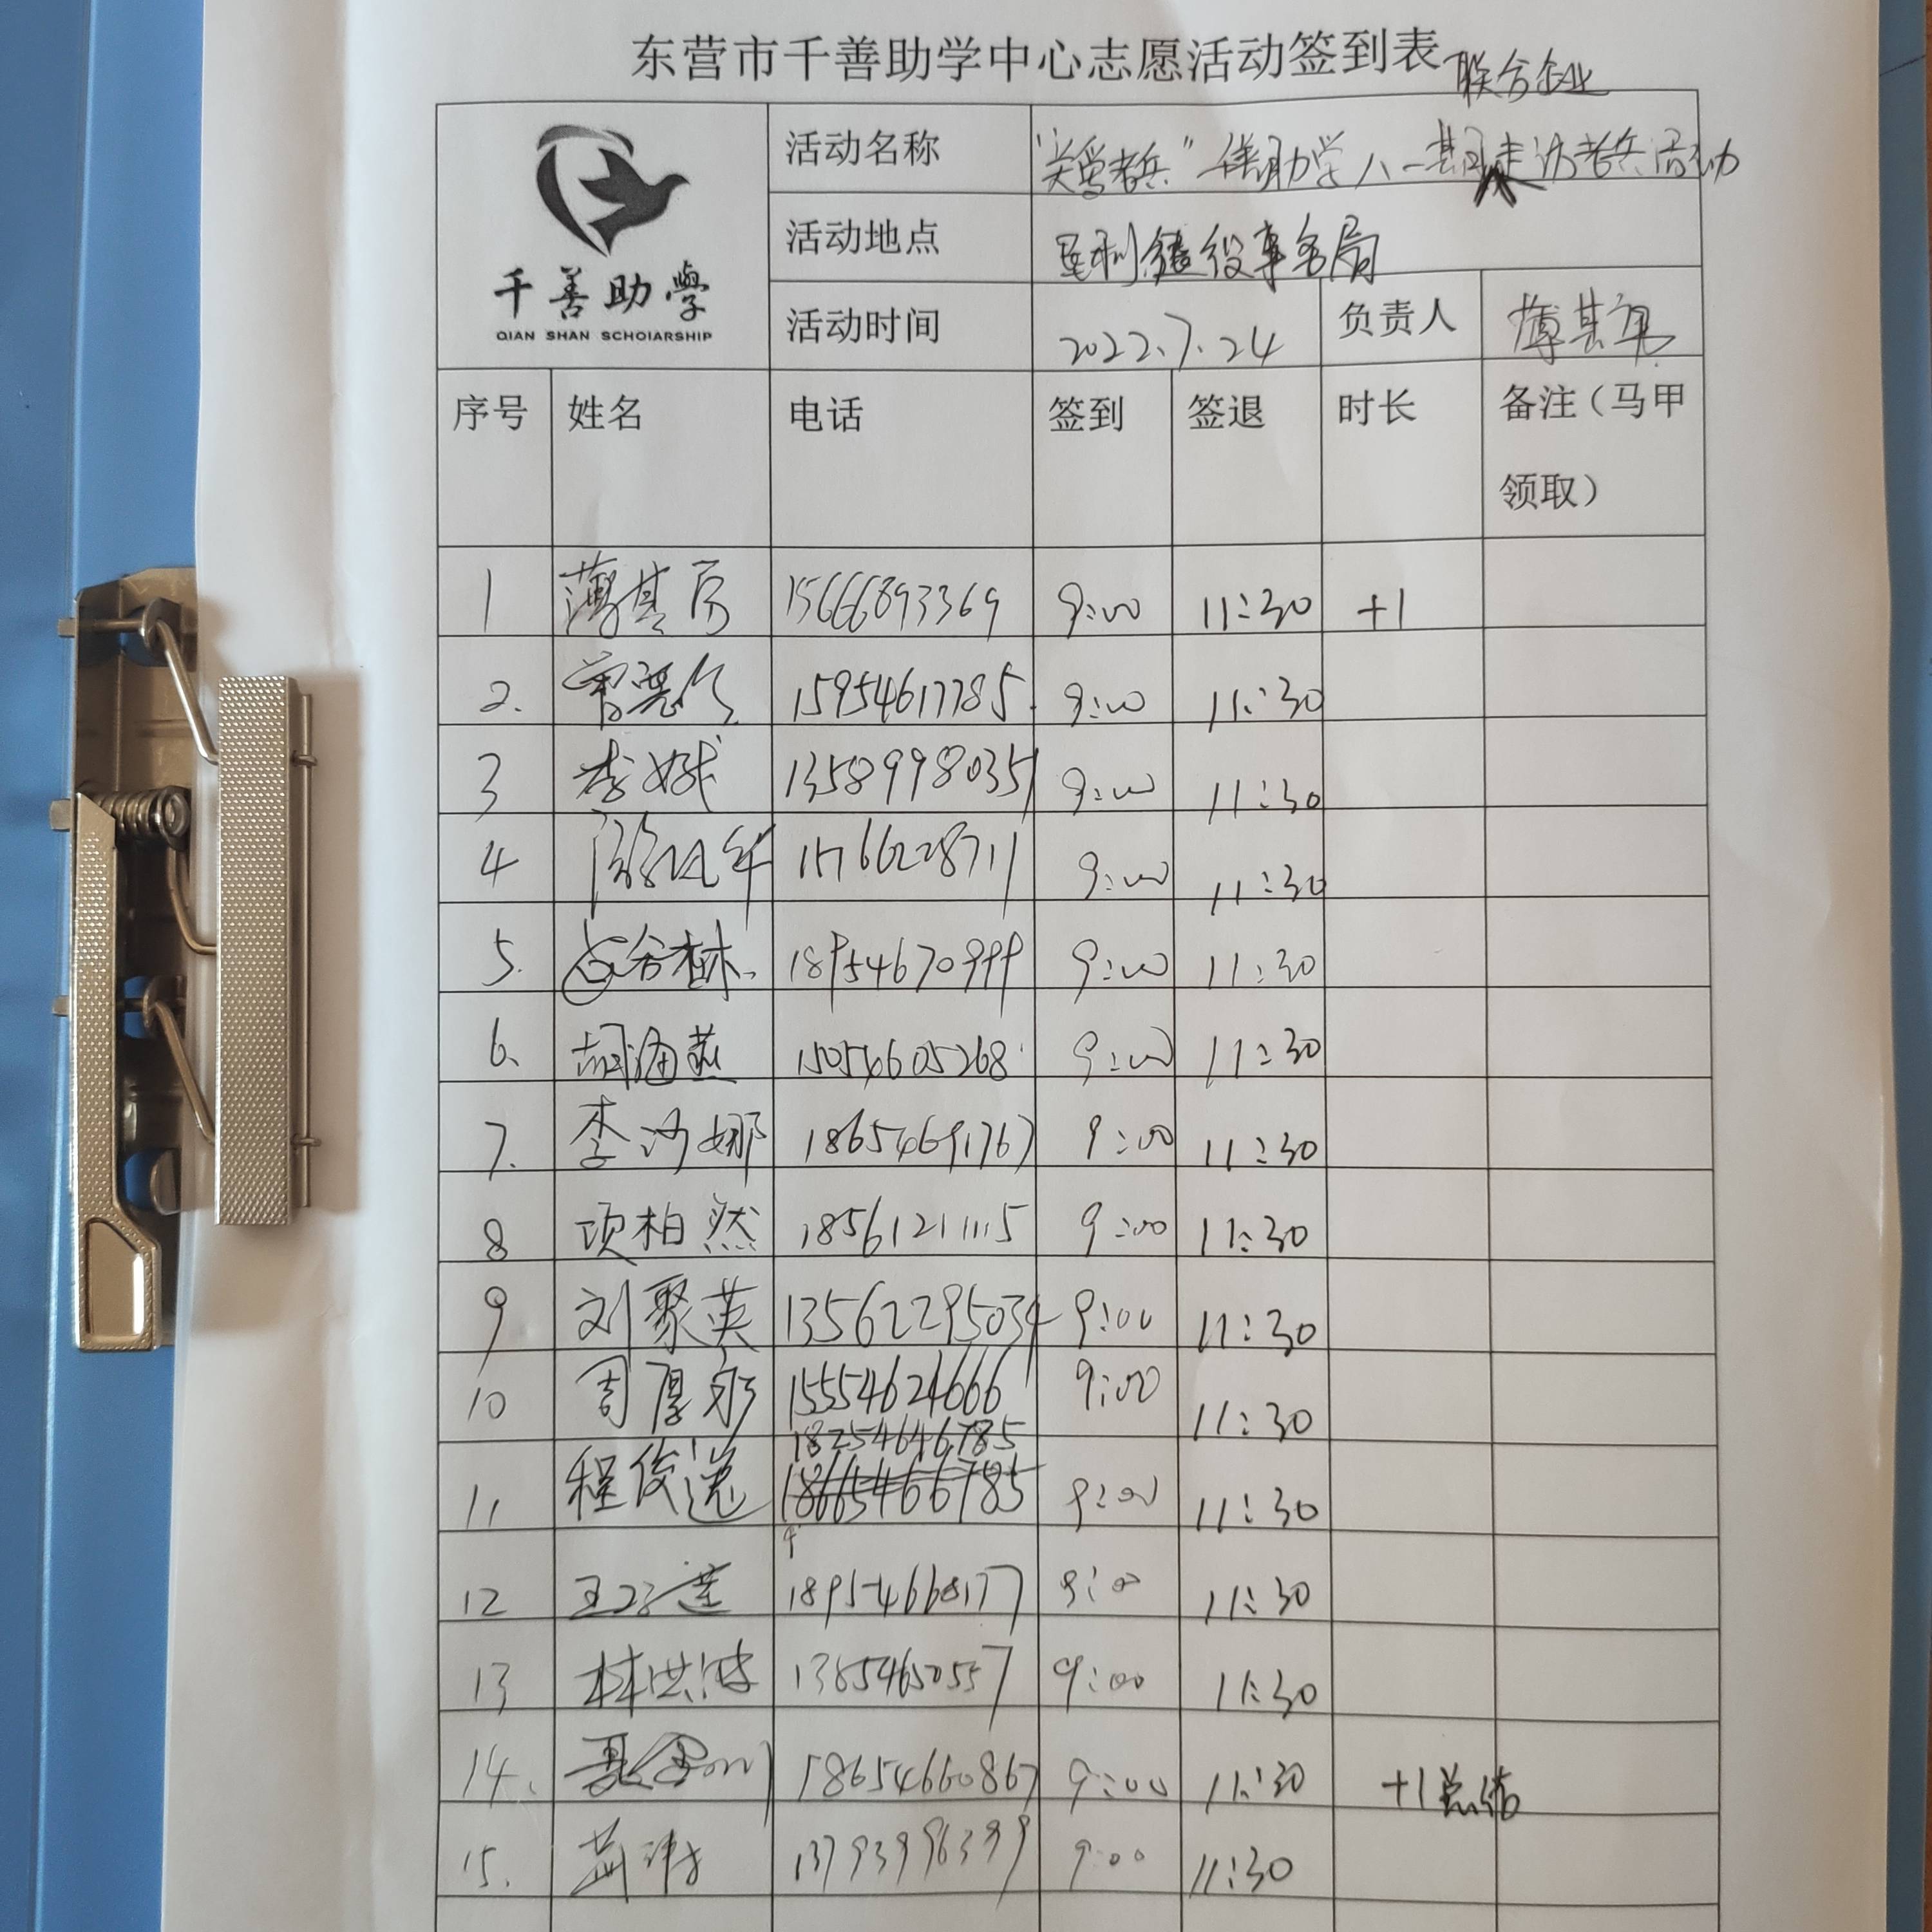 东营市千善助学中心志愿活动签到表
联合企业
活动名称 "关爱老兵" 助学八一 走访老兵活动
千善助學
QIAN SHAN SCHOIARSHIP
活动地点 垦利 役事务局
活动时间 2022.7.24 负责人 薄其
序号 姓名 电话 签到 签退 时长 备注（马甲
领取）
1 薄其 15666893369 9:00 11:30 +1
2. 15954617785. 9:00 11:30
3 李娥 13589998035 9:00 11:30
4 17666228711 9:00 11:30
5. 18954670999 9:00 11:30
6. 胡海燕 15054605268 9:00 11:30
7. 李沙娜 18654691767 9:00 11:30
8 项柏然 18561211115 9:00 11:30
9 刘聚英 13562295034 9:00 11:30
10 周厚 15554624666 9:00 11:30
18254646785
11 程俊逸 18665466785 9:00 11:30
12 王 莲 18954668177 9:00 11:30
13 林洪涛 13854650557 9:00 11:30
14. 18654660867 9:00 11:30 +1总结
15. 13793996399 9:00 11:30